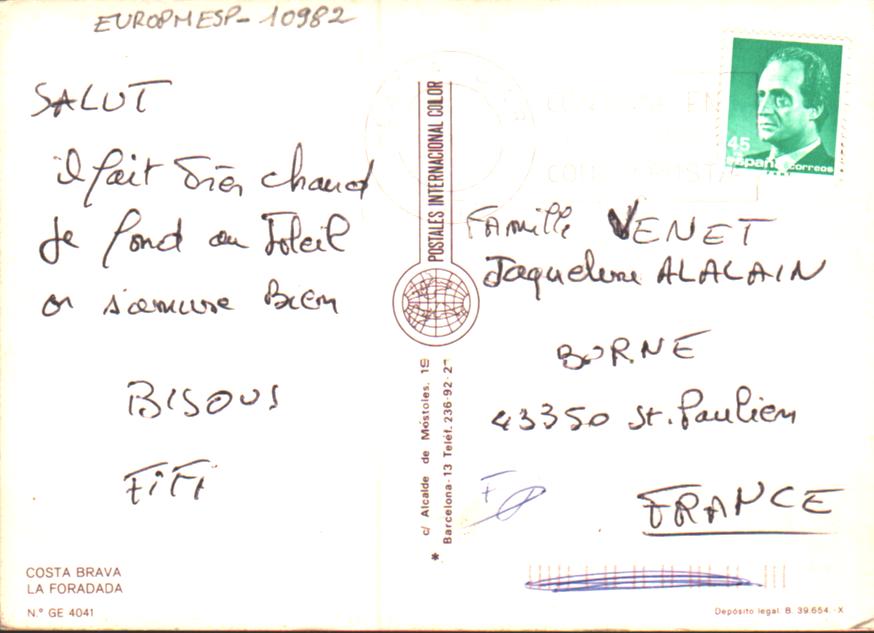 EUROPMESP-10982
SALUT
il fait très chaud
Je fond au Soleil
on s'amuse Bien
BISOUS
FIFI
COSTA BRAVA
LA FORADADA
N.º GE 4041
POSTALES INTERNACIONAL COLOR
c/ Alcalde de Móstoles, 19
Barcelona-13 Teléf. 236-92-21
45
España correos
Famille VENET
Jaqueline ALALAIN
BORNE
43350 St. Paulien
FRANCE
Depósito legal: B. 39.654 -X